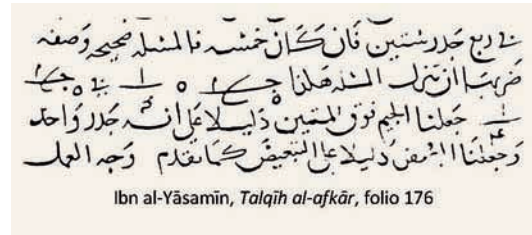 في ربع جدر ستين فان كان خمسة فالمسئلة صحيحة وصفة
ضربها ان تنزل المسئلة هكذا
جعلنا الجيم فوق الستين دليلا على انه جدر واحد
وجعلنا دليلا على التبعيض كما تقدم وجه العمل
Ibn al-Yāsamīn, Talqīḥ al-afkār, folio 176